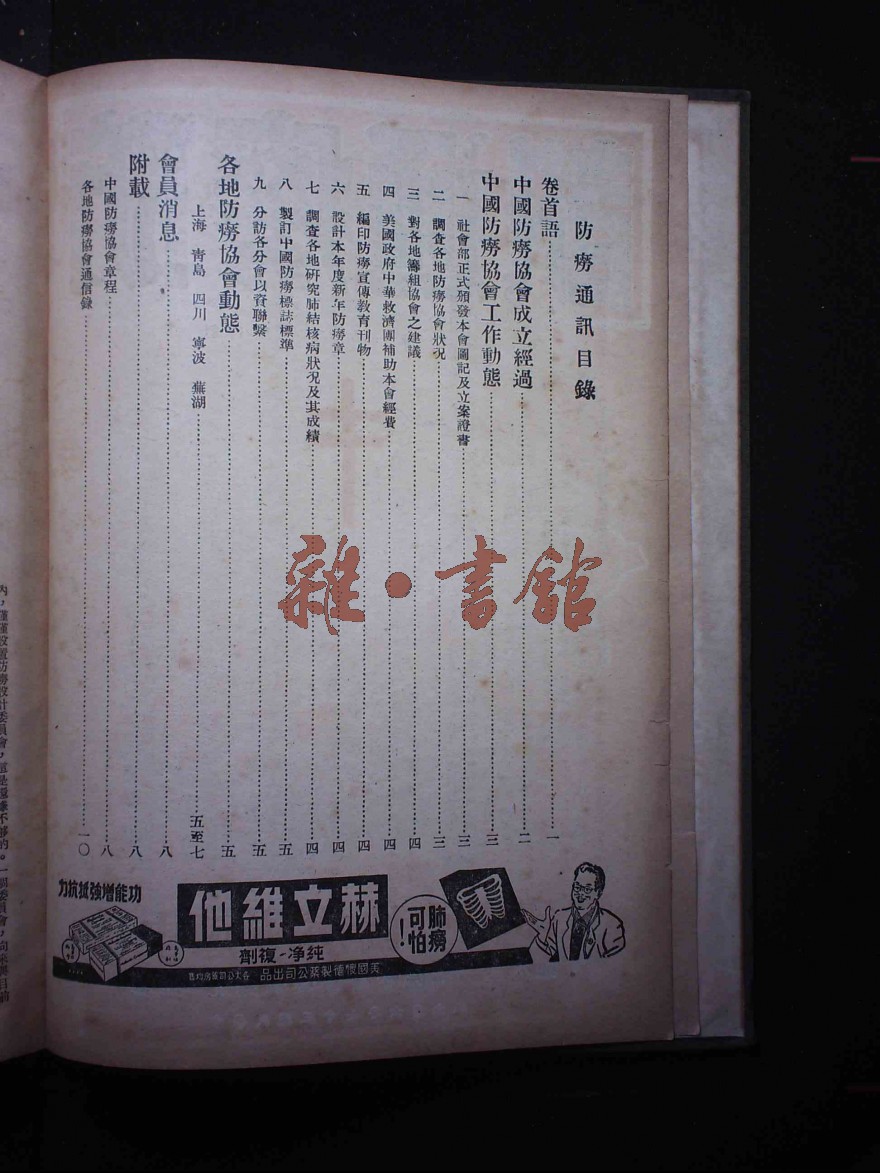 防癆通訊目錄
卷首語……一
中國防癆協會成立經過……二
中國防癆協會工作動態……三
一 社會部正式頒發本會圖記及立案證書……三
二 調查各地防癆協會狀況……三
三 對各地籌組協會之建議……四
四 美國政府中華救濟團補助本會經費……四
五 編印防癆宣傳教育刊物……四
六 設計本年度新年防癆章……四
七 調查各地研究肺結核病狀況及其成績……四
八 製訂中國防癆標誌標準……五
九 分訪各分會以資聯繫……五
各地防癆協會動態……五
上海 青島 四川 寧波 蕪湖……五至七
會員消息……八
附載……八
中國防癆協會章程……八
各地防癆協會通信錄……一〇
雜·書館
肺癆
可怕!
他維立赫
劑複-淨純
力抗抵強增能功
美國懷德製藥公司出品
內,僅僅設置防癆設計委員會,這是遠嫌不夠的。一個委員會,